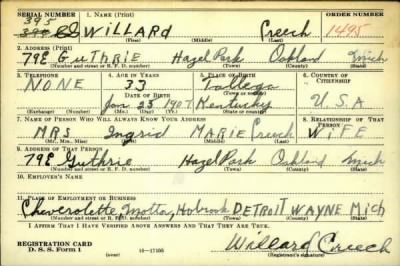 SERIAL NUMBER 1. NAME (Print) ORDER NUMBER
395
WILLARD Creech 1495
(First) (Middle) (Last)
2. ADDRESS (Print)
79E GUTHRIE Hazel Park Oakland Mich
(Number and street or R. F. D. number) (Town) (County) (State)
3. TELEPHONE 4. AGE IN YEARS 5. PLACE OF BIRTH 6. COUNTRY OF CITIZENSHIP
NONE 33 Tallega
DATE OF BIRTH (Town or county)
Jan 23 1907 Kentucky U.S.A
(Exchange) (Number) (Mo.) (Day) (Yr.) (State or country)
7. NAME OF PERSON WHO WILL ALWAYS KNOW YOUR ADDRESS 8. RELATIONSHIP OF THAT PERSON
MRS Ingrid MARIE Creech WIFE
(Mr., Mrs., Miss) (First) (Middle) (Last)
9. ADDRESS OF THAT PERSON
79E Guthrie Hazel Park Oakland Mich
(Number and street or R. F. D. number) (Town) (County) (State)
10. EMPLOYER'S NAME
11. PLACE OF EMPLOYMENT OR BUSINESS
Cheverolette Mottor, Holbrook DETROIT WAYNE Mich
(Number and street or R. F. D. number) (Town) (County) (State)
I AFFIRM THAT I HAVE VERIFIED ABOVE ANSWERS AND THAT THEY ARE TRUE.
REGISTRATION CARD
D. S. S. Form 1 (over) 16—17105 Willard Creech
(Registrant's signature)